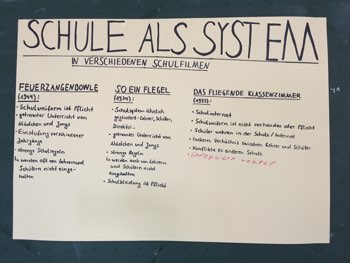 SCHULE ALS SYSTEM
IN VERSCHIEDENEN SCHULFILMEN
FEUERZANGENBOWLE
(1944):
- Schuluniform ist Pflicht
- getrennter Unterricht von
Mädchen und Jungs
- Einstufung verschiedener
Jahrgänge
- strenge Schulregeln
↳ werden oft von Lehrern und
Schülern nicht einge-
halten
SO EIN FLEGEL
(1934):
- Schulsystem ähnlich
gegliedert: Lehrer, Schüler,
Direktor...
- getrennter Unterricht von
Mädchen und Jungs
- strenge Regeln
↳ werden auch von Lehrern
und Schülern nicht
eingehalten
- Schulkleidung ist Pflicht
DAS FLIEGENDE KLASSENZIMMER
(1973):
- Schulinternat
- Schuluniform ist nicht vorhanden oder Pflicht
- Schüler wohnen in der Schule / Internat
- lockeres Verhältnis zwischen Lehrer und Schüler
- Konflikte zu anderen Schule
Lehrer